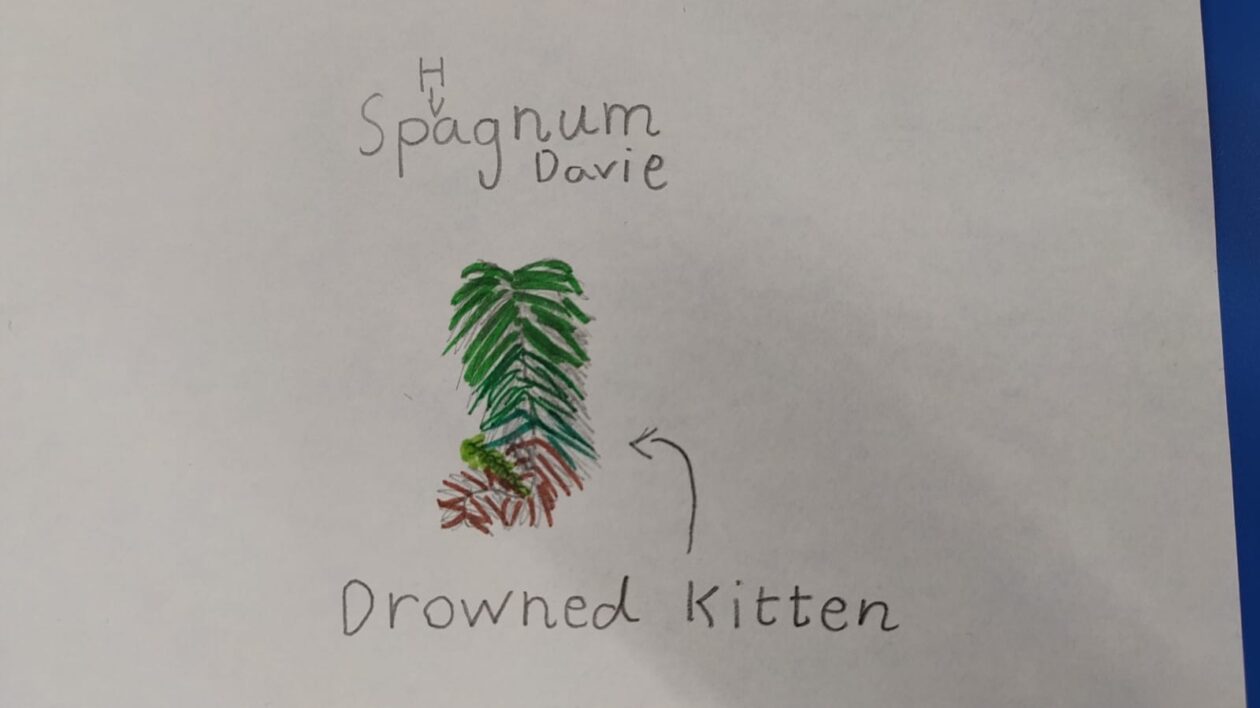 H
Spagnum
Davie
Drowned Kitten